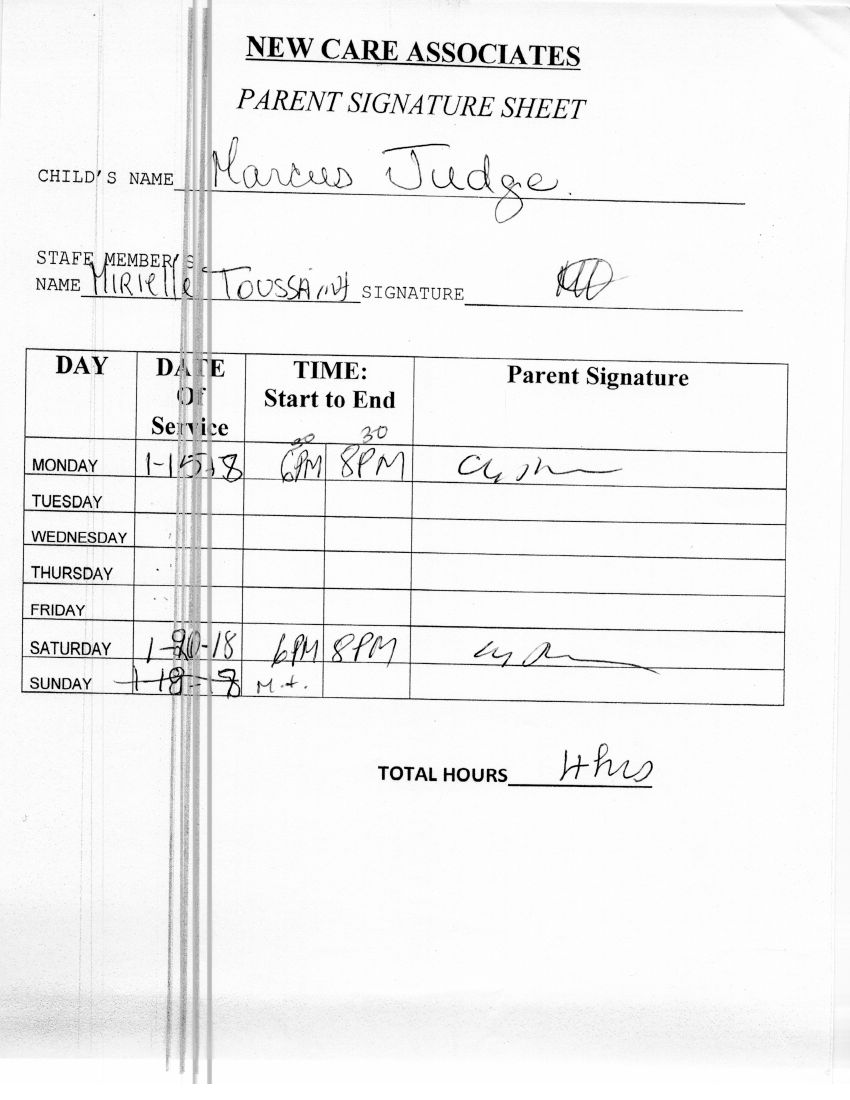 NEW CARE ASSOCIATES
PARENT SIGNATURE SHEET
CHILD'S NAME Marcus Judge.
STAFF MEMBER'S
NAME MIRIELLE TOUSSAINT SIGNATURE
DAY DATE Of Service TIME: Start to End Parent Signature
MONDAY 1-15-18 6 30 PM 8 30 PM
TUESDAY
WEDNESDAY
THURSDAY
FRIDAY
SATURDAY 1-20-18 6PM 8PM
SUNDAY M.t.
TOTAL HOURS 4hrs